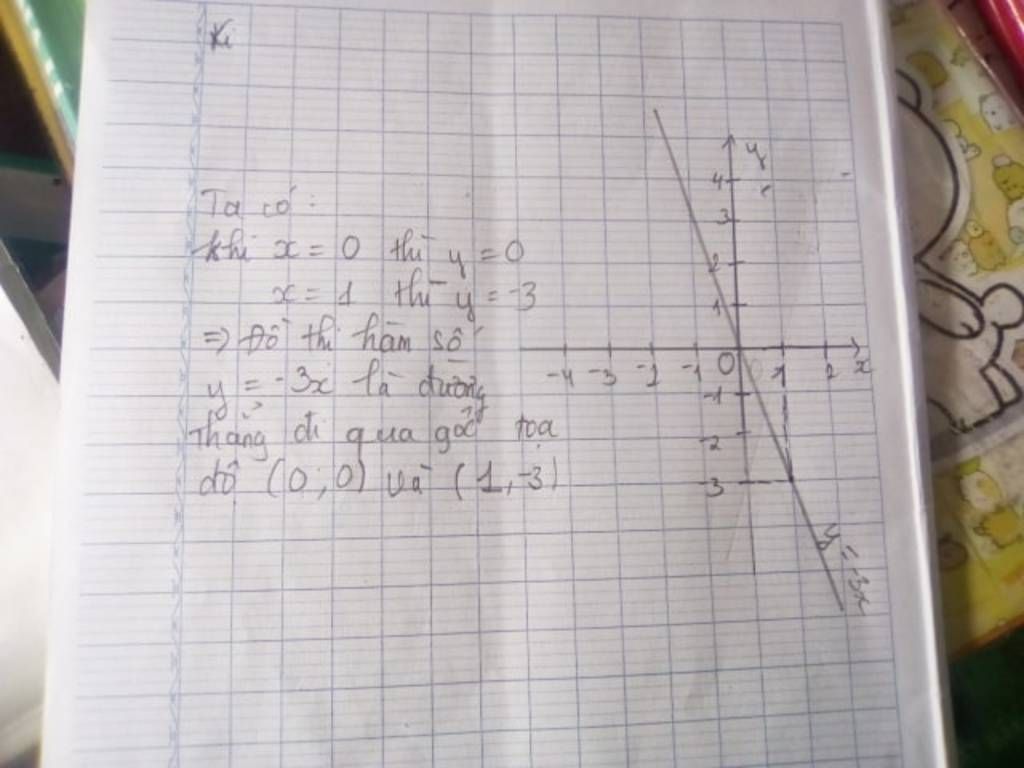 Ta có :
khi x = 0 thì y = 0
x = 1 thì y = -3
=> Đồ thị hàm số
y = -3x là đường
thẳng đi qua gốc tọa
độ (0; 0) và (1, -3)
y
4
3
2
1
-4 -3 -2 -1 0 1 2 x
-1
-2
-3
y = -3x